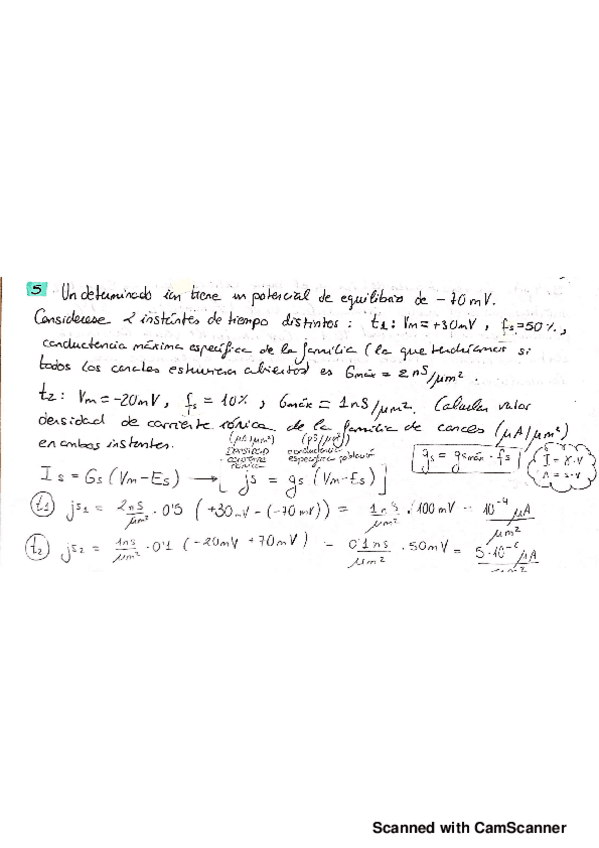 5 Un determinado ion tiene un potencial de equilibrio de -70mV.
Considerese 2 instantes de tiempo distintos: t1: Vm=+30mV, fs=50%,
conductancia máxima específica de la familia (la que tendríamos si
todos los canales estuvieran abiertos) es Gmáx = 2nS/μm².
t2: Vm=-20mV, fs = 10%, Gmáx = 1nS/μm². Calcular valor
densidad de corriente iónica de la familia de canales (μA/μm²)
en ambos instantes.
(pA/μm²) (pS/μm²)
densidad corriente iónica
conductancia específica
gs = gsmáx · fs
I = γ·V
A = S·V
Is = Gs (Vm-Es) → [ js = gs (Vm-Es) ]
t1 js1 = 2nS/μm² · 0'5 (+30mV - (-70mV)) = 1nS/μm² · 100mV = 10⁻⁴ μA/μm²
t2 js2 = 1nS/μm² · 0'1 (-20mV + 70mV) = 0'1nS/μm² · 50mV = 5·10⁻⁶ μA/μm²
Scanned with CamScanner